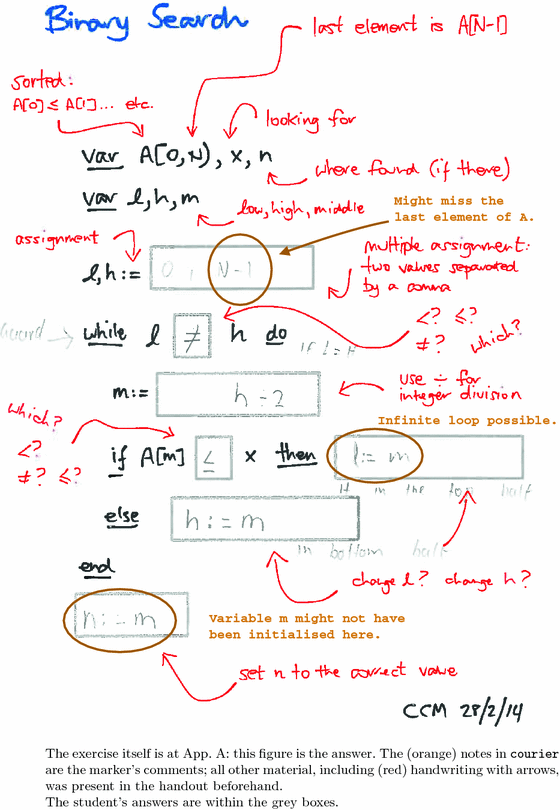 Binary Search
last element is A[N-1]
sorted:
A[0] ≤ A[1]... etc.
looking for
var A[0,N), x, n
where found (if there)
var l,h,m
low, high, middle
Might miss the
last element of A.
assignment
l,h := 0, N-1
multiple assignment:
two values separated
by a comma
guard → while l ≠ h do
<? ≤?
≠? which?
m:= h ÷ 2
use ÷ for
integer division
which?
<?
≠? ≤?
Infinite loop possible.
if A[m] ≤ x then l:= m
If in the top half
else h:= m
in bottom half
end
change l? change h?
n:= m
Variable m might not have
been initialised here.
set n to the correct value
CCM 28/2/14
The exercise itself is at App. A: this figure is the answer. The (orange) notes in courier
are the marker's comments; all other material, including (red) handwriting with arrows,
was present in the handout beforehand.
The student's answers are within the grey boxes.